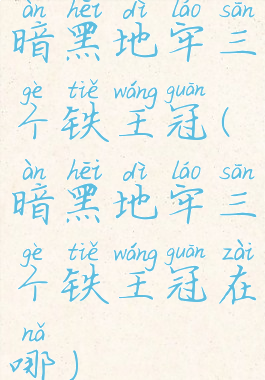 àn hēi dì láo sān
暗黑地牢三
gè tiě wáng guān
个铁王冠(
àn hēi dì láo sān
暗黑地牢三
gè tiě wáng guān zài
个铁王冠在
nǎ
哪)